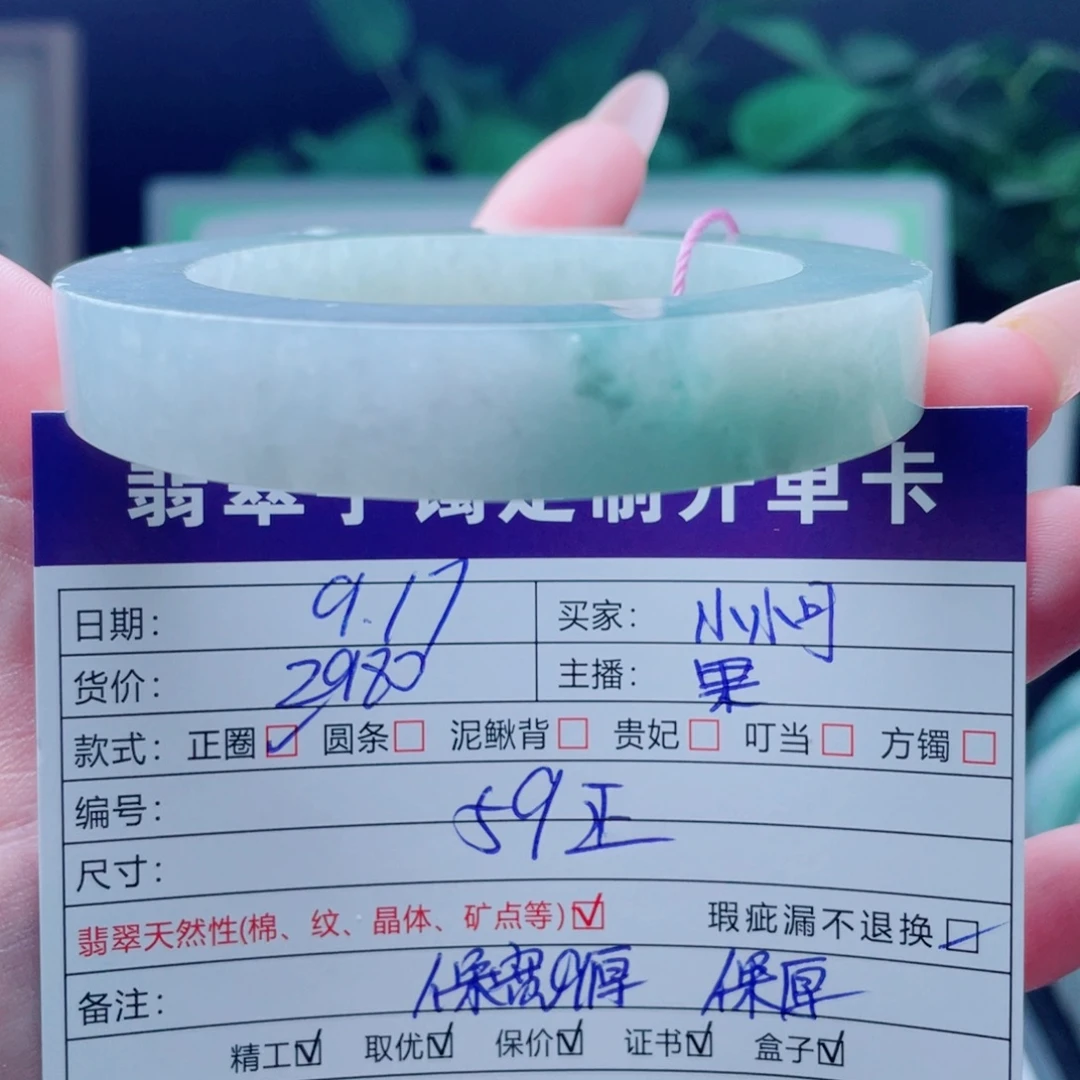 翡翠手镯定制开单卡
日期： 9.17 买家： 小小问
货价： 2980 主播： 果
款式： 正圈☑ 圆条□ 泥鳅背□ 贵妃□ 叮当□ 方镯□
编号： 59正
尺寸：
翡翠天然性(棉、纹、晶体、矿点等)☑ 瑕疵漏不退换☑
备注： 保宽 9厚 保厚
精工☑ 取优☑ 保价☑ 证书☑ 盒子☑